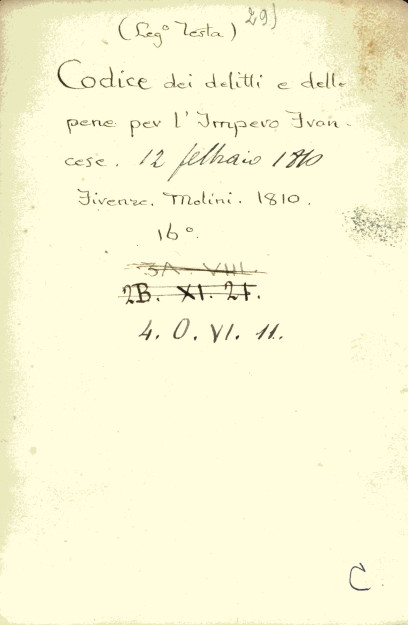 29)
(Leg° Testa)
Codice dei delitti e delle
pene per l'Impero Fran-
cese. 12 febbraio 1810
Firenze. Molini. 1810.
16°.
3A. VIII.
2B. XI. 27.
4. O. VI. 11.
C